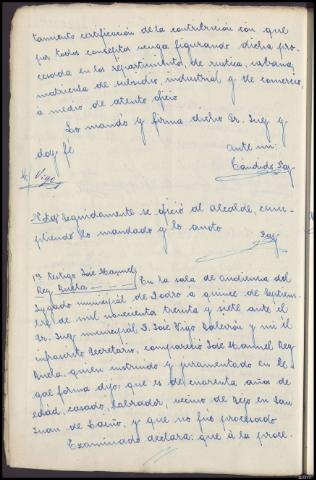 tamiento certificación de la contribución con que
por todos conceptos venga figurando dicha pro-
cesada en los repartimientos, de rustica, urbana,
matricula de subsidio, industrial y de comercio,
á medio de atento oficio
Lo mandó y firma dicho Sr. Juez y
doy fé
ante mi:
E/ Vigo
Cándido Rey
Nota/ Seguidamente se ofició al alcalde, cum-
pliendo lo mandado y lo anoto
Rey
1er testigo José Manuel
Rey Buela
En la sala de audiencia del
Juzgado municipal de Dodro a quince de Septiem-
bre de mil novecientos treinta y siete ante el
Sr. Juez municipal D. José Vigo y mi el
infrascrito Secretario, compareció José Manuel Rey
Buela, quien instruido y juramentado en le-
gal forma dijo: que es de cuarenta años de
edad, casado, labrador, vecino de en San
Juan de Laíño, y que no fué procesado
Examinado declara: que á la proce-